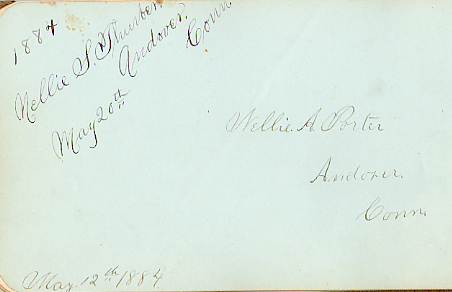 1884
Nellie S. Thurber
Andover,
Conn
May 20th
Nellie A. Porter
Andover.
Conn.
May 12th 1884